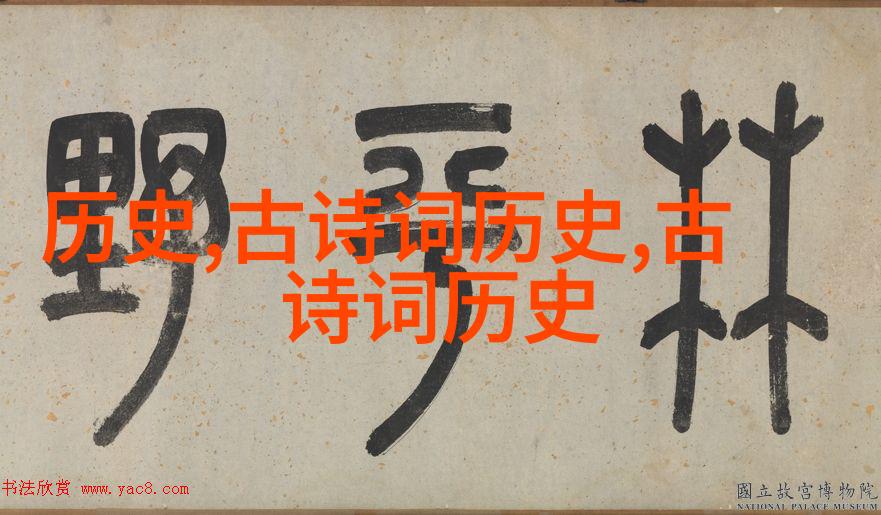 林平野
历史,古诗词历史,古
诗词历史
书法欣赏 www.yac8.com
國立故宮博物院
NATIONAL PALACE MUSEUM